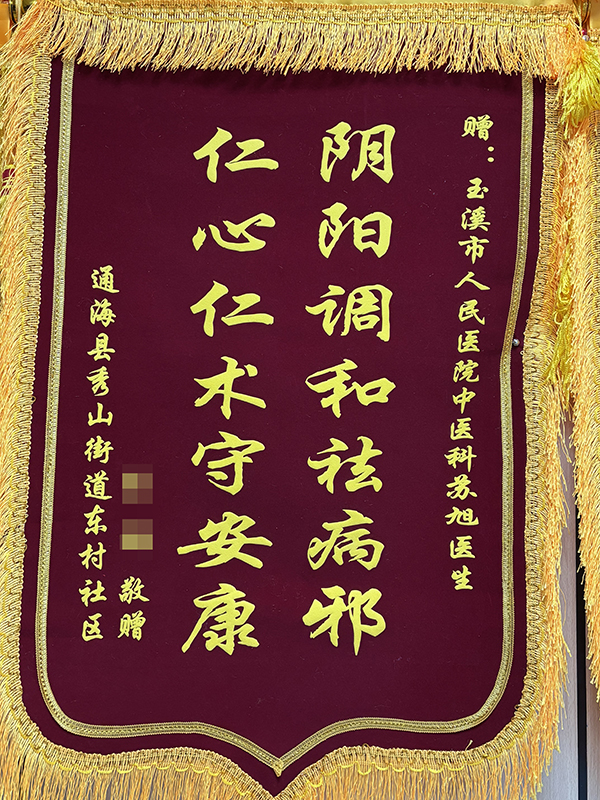 赠：玉溪市人民医院中医科苏旭医生
阴阳调和祛病邪
仁心仁术守安康
通海县秀山街道东村社区
敬赠